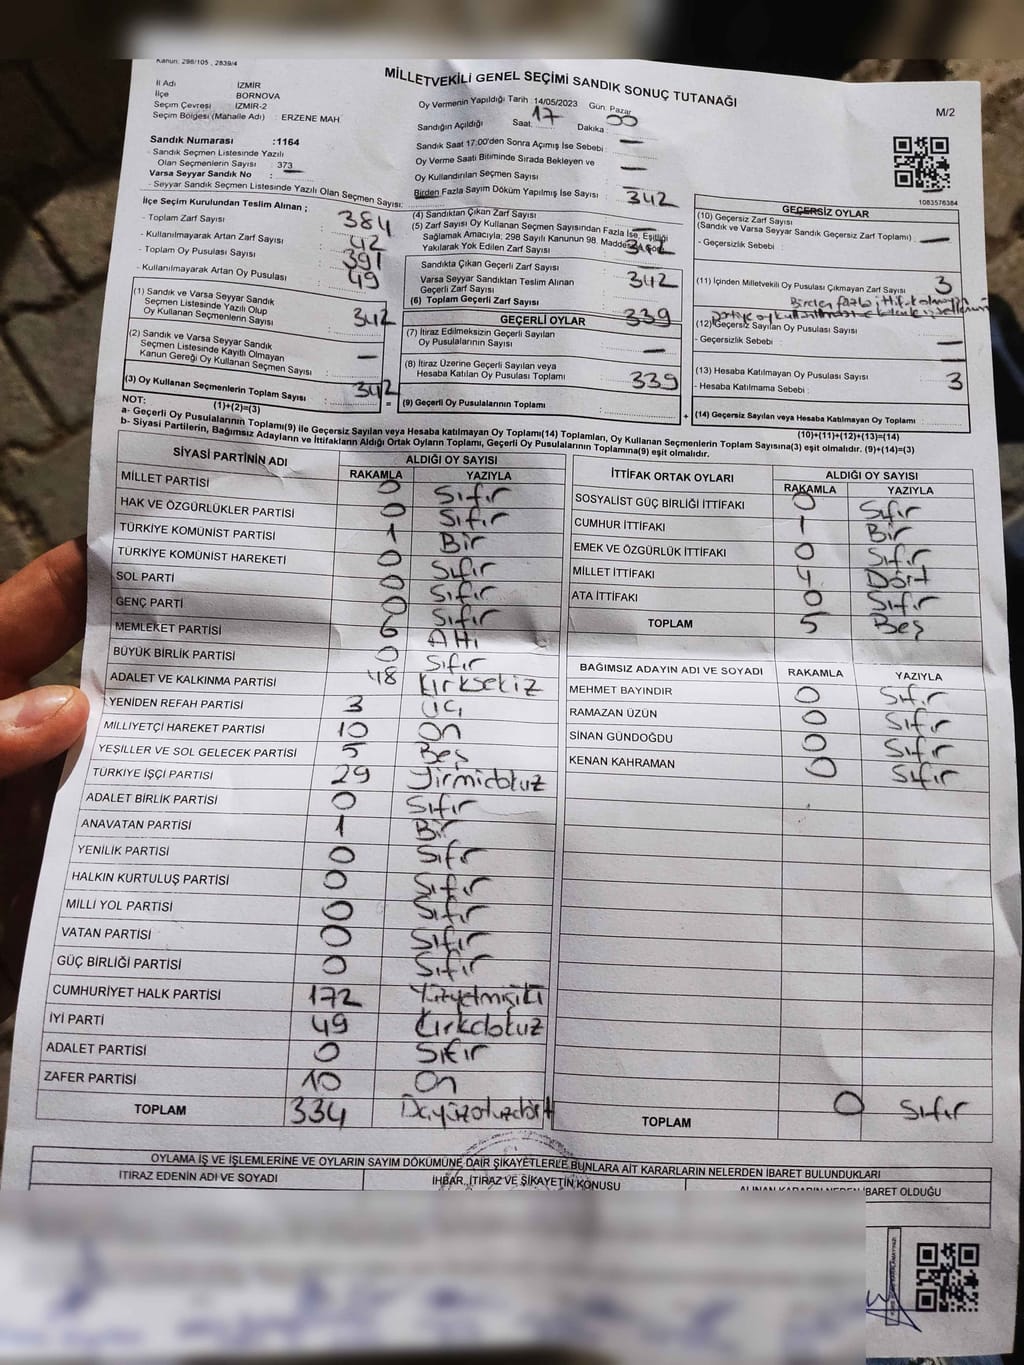 Kanun: 298/105 , 2839/4
MİLLETVEKİLİ GENEL SEÇİMİ SANDIK SONUÇ TUTANAĞI
M/2
İl Adı İZMİR
İlçe BORNOVA
Seçim Çevresi İZMİR-2
Seçim Bölgesi (Mahalle Adı) : ERZENE MAH
Sandık Numarası :1164
- Sandık Seçmen Listesinde Yazılı
Olan Seçmenlerin Sayısı : 373
Varsa Seyyar Sandık No : —
- Seyyar Sandık Seçmen Listesinde Yazılı Olan Seçmen Sayısı:
Oy Vermenin Yapıldığı Tarih :14/05/2023 Gün: Pazar
Sandığın Açıldığı Saat: 17 Dakika : 00
Sandık Saat 17:00'den Sonra Açımış İse Sebebi : —
Oy Verme Saati Bitiminde Sırada Bekleyen ve
Oy Kullandırılan Seçmen Sayısı : —
Birden Fazla Sayım Döküm Yapılmış İse Sayısı : —
1083576384
İlçe Seçim Kurulundan Teslim Alınan ;
- Toplam Zarf Sayısı : 384
- Kullanılmayarak Artan Zarf Sayısı : 42
- Toplam Oy Pusulası Sayısı : 391
- Kullanılmayarak Artan Oy Pusulası : 49
(1) Sandık ve Varsa Seyyar Sandık
Seçmen Listesinde Yazılı Olup
Oy Kullanan Seçmenlerin Sayısı : 342
(2) Sandık ve Varsa Seyyar Sandık
Seçmen Listesinde Kayıtlı Olmayan
Kanun Gereği Oy Kullanan Seçmen Sayısı : —
(3) Oy Kullanan Seçmenlerin Toplam Sayısı : 342
(1)+(2)=(3)
(4) Sandıktan Çıkan Zarf Sayısı : 342
(5) Zarf Sayısı Oy Kullanan Seçmen Sayısından Fazla İse, Eşitliği
Sağlamak Amacıyla; 298 Sayılı Kanunun 98. Maddesi
Yakılarak Yok Edilen Zarf Sayısı
Sandıkta Çıkan Geçerli Zarf Sayısı : 342
Varsa Seyyar Sandıktan Teslim Alınan
Geçerli Zarf Sayısı
(6) Toplam Geçerli Zarf Sayısı : 342
GEÇERLİ OYLAR
(7) İtiraz Edilmeksizin Geçerli Sayılan
Oy Pusulalarının Sayısı : 339
(8) İtiraz Üzerine Geçerli Sayılan veya
Hesaba Katılan Oy Pusulası Toplamı : —
(9) Geçerli Oy Pusulalarının Toplamı : 339
GEÇERSİZ OYLAR
(10) Geçersiz Zarf Sayısı
(Sandık ve Varsa Seyyar Sandık Geçersiz Zarf Toplamı) : —
- Geçersizlik Sebebi :
(11) İçinden Milletvekili Oy Pusulası Çıkmayan Zarf Sayısı :
(12) Geçersiz Sayılan Oy Pusulası Sayısı : 3
- Geçersizlik Sebebi :
(13) Hesaba Katılmayan Oy Pusulası Sayısı : —
- Hesaba Katılmama Sebebi :
(14) Geçersiz Sayılan veya Hesaba Katılmayan Oy Toplamı : 3
(10)+(11)+(12)+(13)=(14)
NOT:
a- Geçerli Oy Pusulalarının Toplamı(9) ile Geçersiz Sayılan veya Hesaba katılmayan Oy Toplamı(14) Toplamları, Oy Kullanan Seçmenlerin Toplam Sayısına(3) eşit olmalıdır. (9)+(14)=(3)
b- Siyasi Partilerin, Bağımsız Adayların ve İttifakların Aldığı Ortak Oyların Toplamı, Geçerli Oy Pusulalarının Toplamına(9) eşit olmalıdır.
SİYASİ PARTİNİN ADI ALDIĞI OY SAYISI
RAKAMLA YAZIYLA
MİLLET PARTİSİ 0 Sıfır
HAK VE ÖZGÜRLÜKLER PARTİSİ 0 Sıfır
TÜRKİYE KOMÜNİST PARTİSİ 1 Bir
TÜRKİYE KOMÜNİST HAREKETİ 0 Sıfır
SOL PARTİ 0 Sıfır
GENÇ PARTİ 0 Sıfır
MEMLEKET PARTİSİ 6 Altı
BÜYÜK BİRLİK PARTİSİ 0 Sıfır
ADALET VE KALKINMA PARTİSİ 48 Kırksekiz
YENİDEN REFAH PARTİSİ 3 Üç
MİLLİYETÇİ HAREKET PARTİSİ 10 On
YEŞİLLER VE SOL GELECEK PARTİSİ 5 Beş
TÜRKİYE İŞÇİ PARTİSİ 29 Yirmidokuz
ADALET BİRLİK PARTİSİ 0 Sıfır
ANAVATAN PARTİSİ 1 Bir
YENİLİK PARTİSİ 0 Sıfır
HALKIN KURTULUŞ PARTİSİ 0 Sıfır
MİLLİ YOL PARTİSİ 0 Sıfır
VATAN PARTİSİ 0 Sıfır
GÜÇ BİRLİĞİ PARTİSİ 0 Sıfır
CUMHURİYET HALK PARTİSİ 172 Yüzyetmişiki
İYİ PARTİ 49 Kırkdokuz
ADALET PARTİSİ 0 Sıfır
ZAFER PARTİSİ 10 On
TOPLAM 334 Üçyüzotuzdört
İTTİFAK ORTAK OYLARI ALDIĞI OY SAYISI
RAKAMLA YAZIYLA
SOSYALİST GÜÇ BİRLİĞİ İTTİFAKI 0 Sıfır
CUMHUR İTTİFAKI 1 Bir
EMEK VE ÖZGÜRLÜK İTTİFAKI 0 Sıfır
MİLLET İTTİFAKI 4 Dört
ATA İTTİFAKI 0 Sıfır
TOPLAM 5 Beş
BAĞIMSIZ ADAYIN ADI VE SOYADI RAKAMLA YAZIYLA
MEHMET BAYINDIR 0 Sıfır
RAMAZAN ÜZÜN 0 Sıfır
SİNAN GÜNDOĞDU 0 Sıfır
KENAN KAHRAMAN 0 Sıfır
TOPLAM 0 Sıfır
OYLAMA İŞ VE İŞLEMLERİNE VE OYLARIN SAYIM DÖKÜMÜNE DAİR ŞİKAYETLERLE BUNLARA AİT KARARLARIN NELERDEN İBARET BULUNDUKLARI
İTİRAZ EDENİN ADI VE SOYADI İHBAR, İTİRAZ VE ŞİKAYETİN KONUSU ALINAN KARARIN NEDEN İBARET OLDUĞU